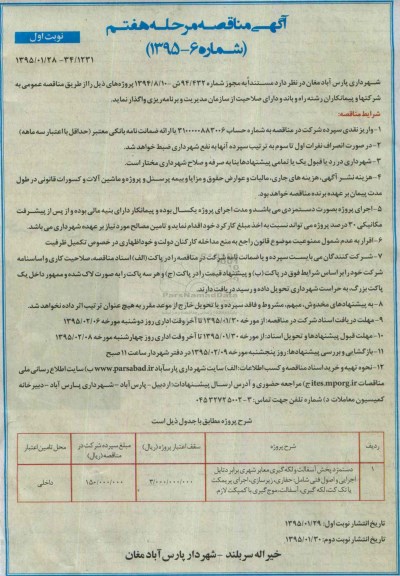 آگهی مناقصه مرحله هفتم
(شماره ۶-۱۳۹۵)
نوبت اول
۱۳۹۵/۰۱/۲۸ - ۳۴/۱۲۳۱
شهرداری پارس آباد مغان در نظر دارد مستنداً به مجوز شماره ۹۴/۴۳۲ش - ۱۳۹۴/۸/۱۰ پروژه های ذیل را از طریق مناقصه عمومی به
شرکتها و پیمانکاران رشته راه و باند و دارای صلاحیت از سازمان مدیریت و برنامه ریزی واگذار نماید.
شرایط مناقصه:
۱- واریز نقدی سپرده شرکت در مناقصه به شماره حساب ۳۱۰۰۰۰۰۸۸۳۰۰۶ یا ارائه ضمانت نامه بانکی معتبر (حداقل با اعتبار سه ماهه)
۲- در صورت انصراف نفرات اول تا سوم به ترتیب سپرده آنها به نفع شهرداری ضبط خواهد شد.
۳- شهرداری در رد یا قبول یک یا تمامی پیشنهادها بنا به صرفه و صلاح شهرداری مختار است.
۴- هزینه نشر آگهی، هزینه های جاری، مالیات و عوارض حقوق و مزایا و بیمه پرسنل و پروژه و ماشین آلات و کسورات قانونی در طول
مدت پیمان بر عهده برنده مناقصه خواهد بود.
۵- اجرای پروژه بصورت دستمزدی می باشد و مدت اجرای پروژه یکسال بوده و پیمانکار دارای بنیه مالی بوده و از پس از پیشرفت
مکانیکی ۲۰ درصد پروژه می تواند نسبت به اخذ مبلغ کارکرد خود اقدام نماید و تامین مصالح مورد نیاز بر عهده شهرداری می باشد.
۶- اقرار به عدم شمول ممنوعیت موضوع قانون راجع به منع مداخله کارکنان دولت و خوداظهاری در خصوص تکمیل ظرفیت
۷- شرکت کنندگان می بایست سپرده و یا ضمانت نامه شرکت در مناقصه را در پاکت (الف) اسناد مناقصه، صلاحیت کاری و اساسنامه
شرکت خود را بر اساس شرایط فوق در پاکت (ب) و پیشنهاد قیمت را در پاکت (ج) و هر سه پاکت را به صورت لاک شده و ممهور داخل یک
پاکت بزرگ، به حراست شهرداری تحویل داده و رسید دریافت دارند.
۸- به پیشنهادهای مخدوش، مبهم، مشروط و فاقد سپرده و یا تحویل خارج از موعد مقرر به هیچ عنوان ترتیب اثر داده نخواهد شد.
۹- مهلت دریافت اسناد شرکت در مناقصه: از مورخه ۱۳۹۵/۰۱/۳۰ تا آخر وقت اداری روز دوشنبه مورخه ۱۳۹۵/۰۲/۰۶
۱۰- مهلت قبول پیشنهادها و تحویل اسناد: از مورخه ۱۳۹۵/۰۱/۳۰ تا آخر وقت اداری روز چهارشنبه مورخه ۱۳۹۵/۰۲/۰۸
۱۱- بازگشایی و بررسی پیشنهادها: روز پنجشنبه مورخه ۱۳۹۵/۰۲/۰۹ در دفتر شهردار ساعت ۱۱ صبح
۱۲- نحوه تهیه و خرید اسناد مناقصه و کسب اطلاعات: الف) سایت شهرداری پارس آباد www.parsabad.ir ب) سایت اطلاع رسانی ملی
مناقصات ites.mporg.ir ج) مراجعه حضوری و آدرس ارسال پیشنهادات: اردبیل - پارس آباد - شهرداری پارس آباد - دبیرخانه
کمیسیون معاملات د) شماره تلفن جهت تماس: ۳-۰۴۵۳۲۷۲۵۰۰۲
شرح پروژه مطابق با جدول ذیل است
ردیف شرح پروژه سقف اعتبار پروژه (ریال) مبلغ سپرده شرکت در مناقصه (ریال) محل تامین اعتبار
۱ دستمزد پخش آسفالت و لکه گیری معابر شهری برابر دتایل
اجرایی و اصول فنی شامل: حفاری، زیرسازی، اجرای پریمکت
یا تک کت، لکه گیری، آسفالت، موج گیری با کمپکت لازم
۳/۰۰۰/۰۰۰/۰۰۰ ۱۵۰/۰۰۰/۰۰۰ داخلی
تاریخ انتشار نوبت اول: ۱۳۹۵/۰۱/۲۹
تاریخ انتشار نوبت دوم: ۱۳۹۵/۰۱/۳۰
خیراله سربلند - شهردار پارس آباد مغان